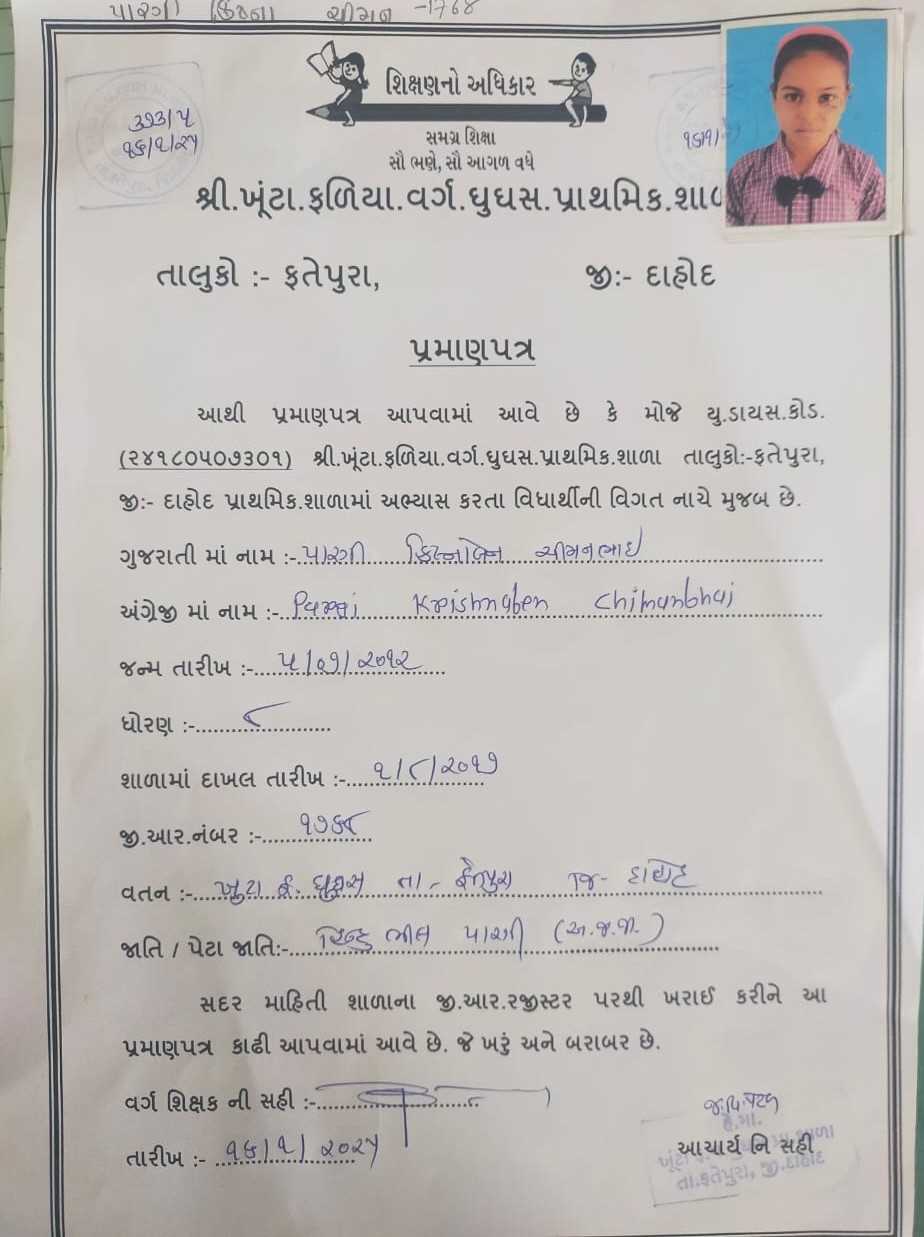 પારગી ક્રિષ્ના ચીમન -1768
શિક્ષણનો અધિકાર
સમગ્ર શિક્ષા
સૌ ભણે, સૌ આગળ વધે
શ્રી.ખૂંટા.ફળિયા.વર્ગ.ઘુઘસ.પ્રાથમિક.શાળ
તાલુકો :- ફતેપુરા, જી:- દાહોદ
પ્રમાણપત્ર
આથી પ્રમાણપત્ર આપવામાં આવે છે કે મોજે યુ.ડાયસ.કોડ.
(૨૪૧૮૦૫૦૭૩૦૧) શ્રી.ખૂંટા.ફળિયા.વર્ગ.ઘુઘસ.પ્રાથમિક.શાળા તાલુકો:-ફતેપુરા,
જી:- દાહોદ પ્રાથમિક.શાળામાં અભ્યાસ કરતા વિધાર્થીની વિગત નાચે મુજબ છે.
ગુજરાતી માં નામ :- પારગી ક્રિષ્નાબેન ચીમનભાઇ
અંગ્રેજી માં નામ :- Pargi Krishnaben Chimanbhai
જન્મ તારીખ :- ૫/૦૭/૨૦૧૨
ધોરણ :- ૮
શાળામાં દાખલ તારીખ :- ૧/૮/૨૦૧૭
જી.આર.નંબર :- ૧૭૬૮
વતન :- ખુટા ફ. ઘુઘસ તા- ફતેપુરા જિ- દાહોદ
જાતિ / પેટા જાતિ:- હિન્દુ ભીલ પારગી (અ.જ.જા.)
સદર માહિતી શાળાના જી.આર.રજીસ્ટર પરથી ખરાઈ કરીને આ
પ્રમાણપત્ર કાઢી આપવામાં આવે છે. જે ખરું અને બરાબર છે.
વર્ગ શિક્ષક ની સહી :-
તારીખ :- ૧૬/૧/૨૦૨૫
આચાર્ય નિ સહી
તા.ફતેપુરા, જી.દાહોદ